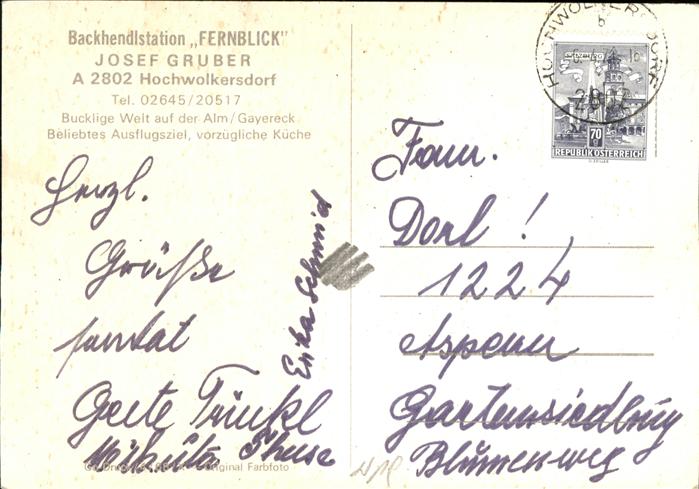 Backhendlstation „FERNBLICK"
JOSEF GRUBER
A 2802 Hochwolkersdorf
Tel. 02645/20517
Bucklige Welt auf der Alm/Gayereck
Beliebtes Ausflugsziel, vorzügliche Küche
Herzl.
Grüße
Trinkl
Erika Schmid
Original Farbfoto
HOCHWOLKERSDORF
b
2802
70
g
REPUBLIK ÖSTERREICH
Fam.
Dorl !
1224
Aspern
Gartensiedlung
Blumenweg